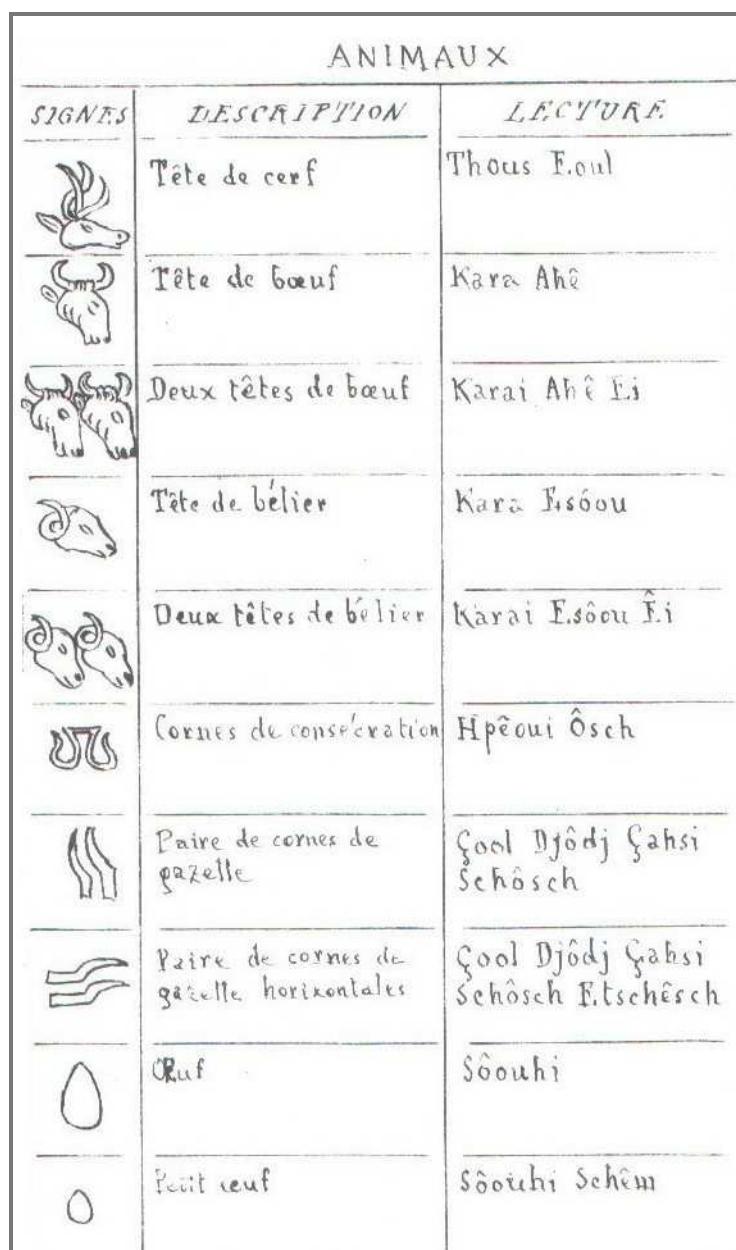 ANIMAUX
SIGNES DESCRIPTION LECTURE
Tête de cerf Thous Eoul
Tête de bœuf Kara Ahê
Deux têtes de bœuf Karai Ahê Ei
Tête de bélier Kara Esôou
Deux têtes de bélier Karai Esôou Êi
Cornes de consécration Hpêoui Ôsch
Paire de cornes de Çool Djôdj Çahsi
gazelle Schôsch
Paire de cornes de Çool Djôdj Çahsi
gazelle horizontales Schôsch Etschêsch
Œuf Sôouhi
Petit œuf Sôouhi Schêm